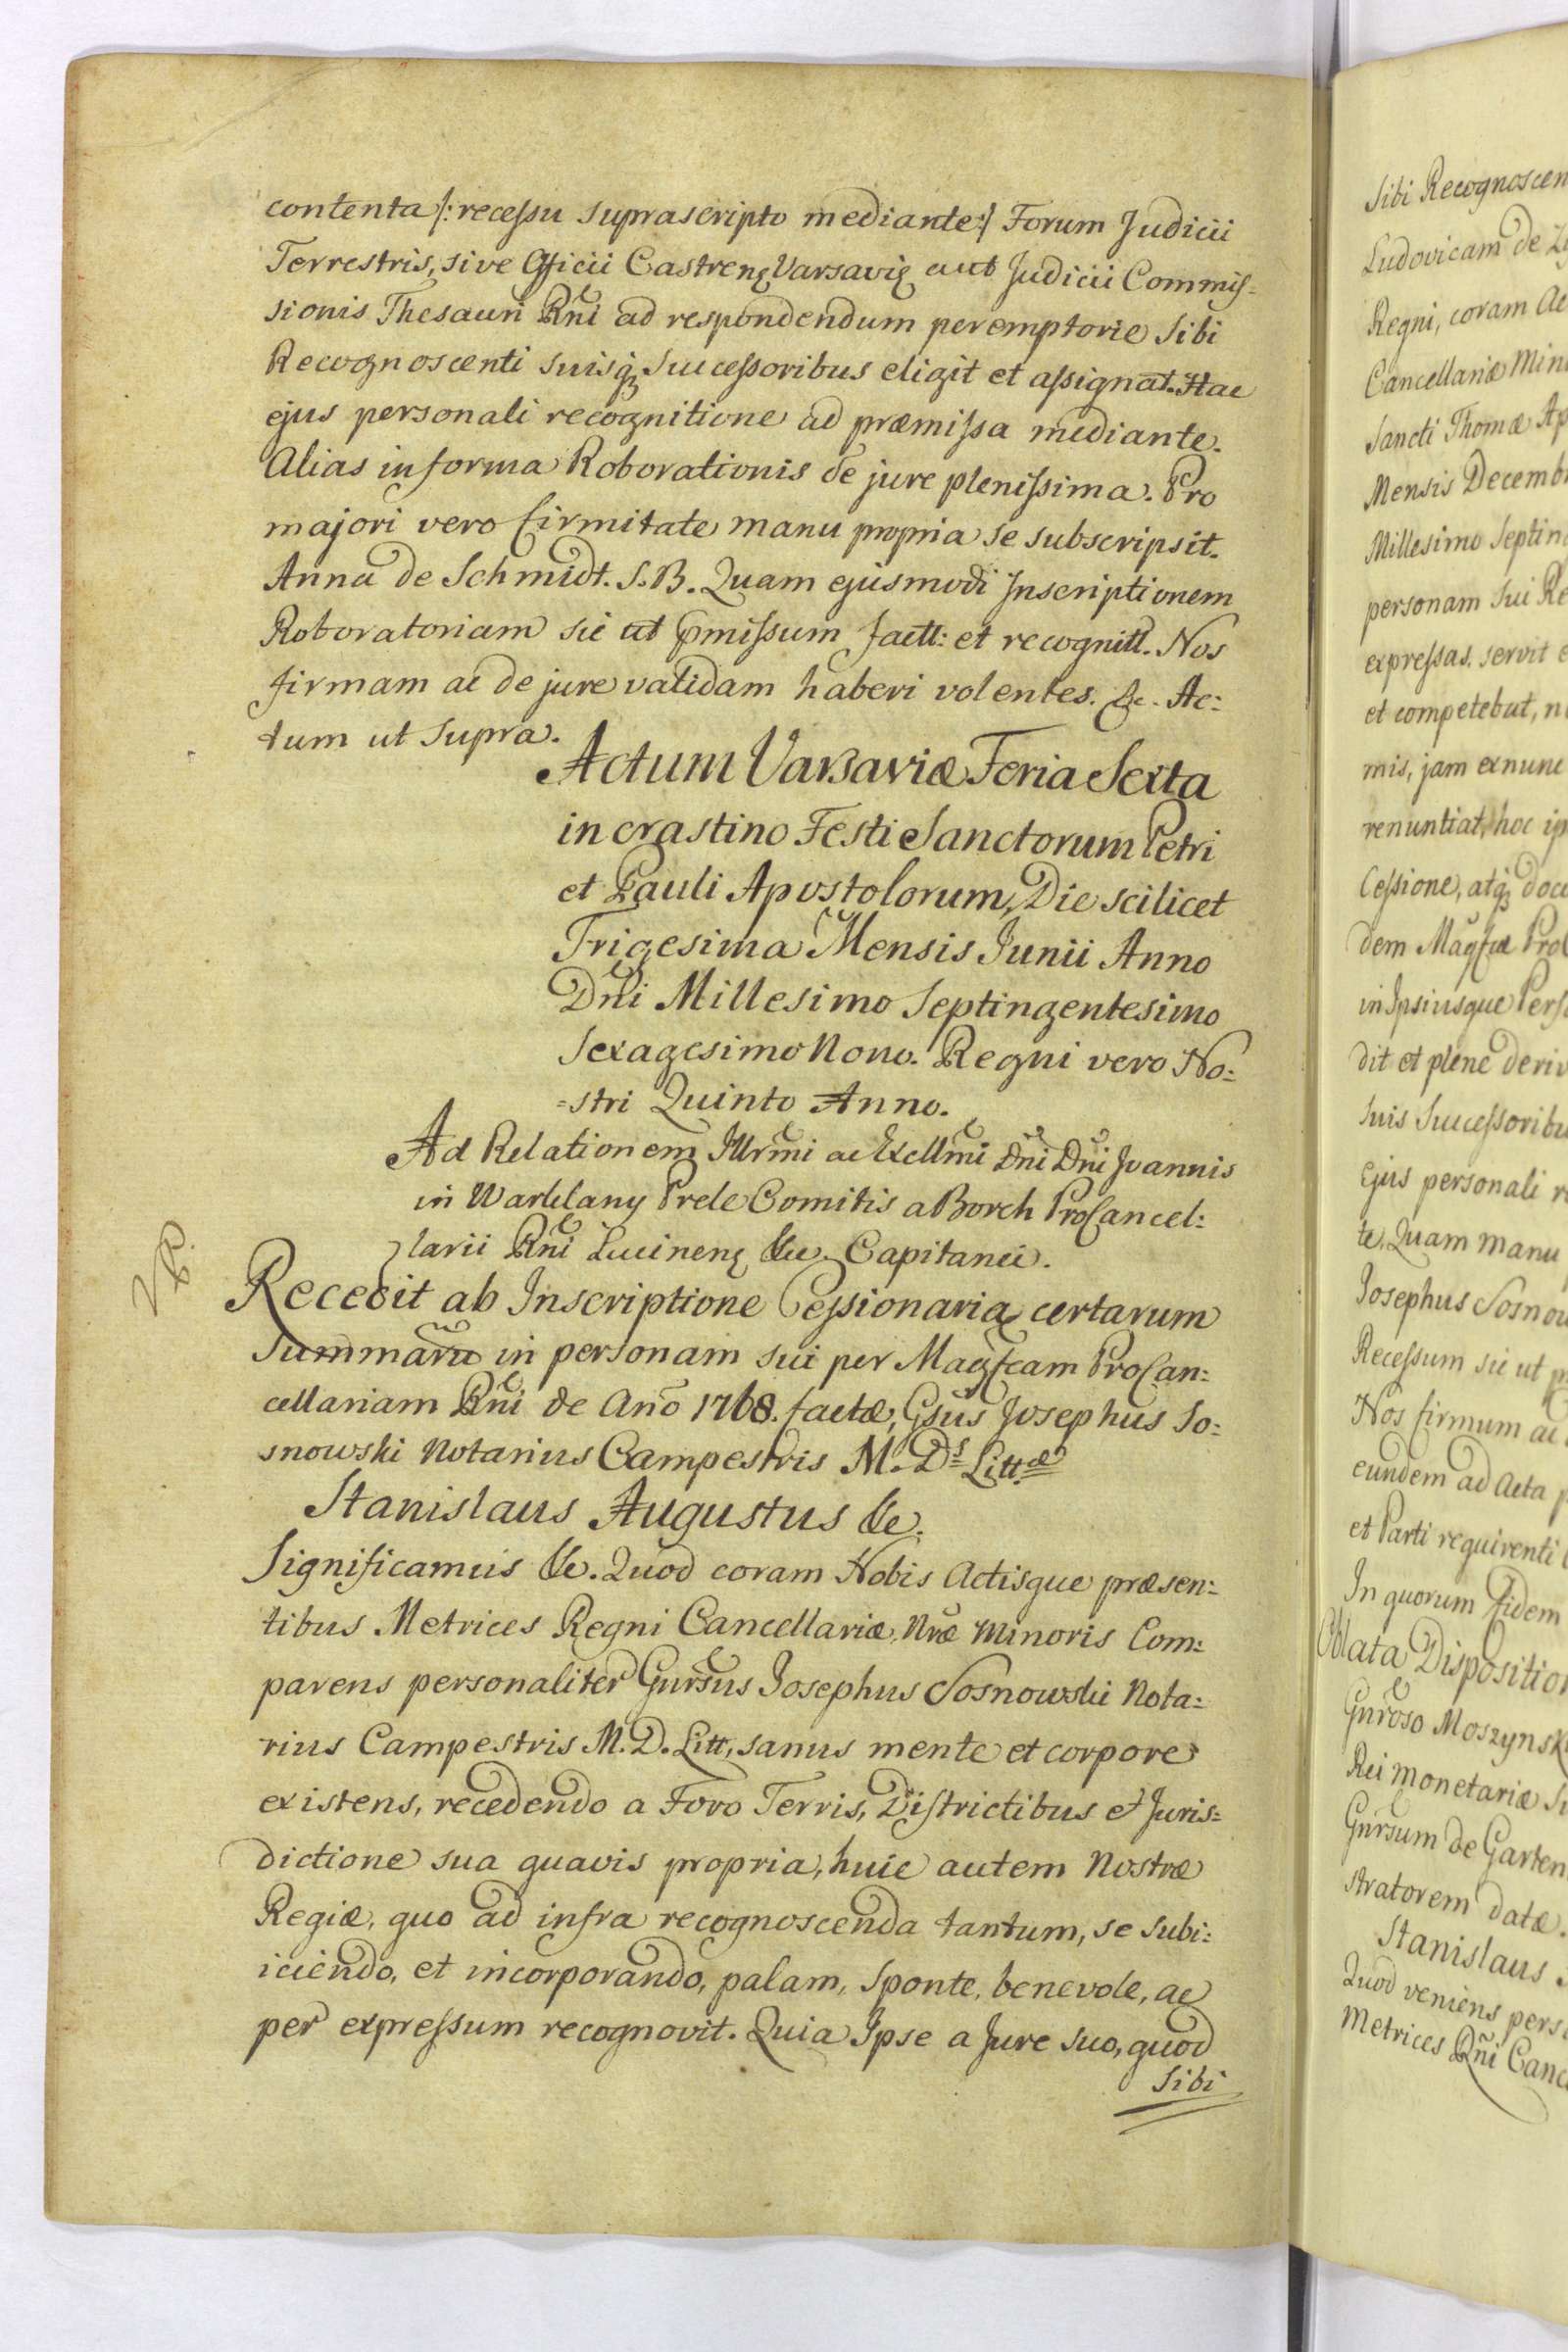 contenta /: recessu suprascripto mediante :/ Forum Judicii
Terrestris, sive Officii Castrenę Varsavię aut Judicii Commis-
sionis Thesauri Rni ad respondendum peremptorie Sibi
Recognoscenti suisqꝫ Successoribus eligit et assignat. Hac
ejus personali recognitione ad præmissa mediante.
Alias in forma Roborationis de jure plenissima. Pro
majori vero firmitate manu propria se subscripsit.
Anna de Schmidt. S. B. Quam ejusmodi Inscriptionem
Roboratoriam sic ut pmissum factt: et recognitt. Nos
firmam ac de jure validam haberi volentes. &c. Ac:
tum ut Supra.
Actum Varsaviæ Feria Sexta
in crastino Festi Sanctorum Petri
et Pauli Apostolorum, Die scilicet
Trigesima Mensis Junii Anno
Dni Millesimo Septingentesimo
Sexagesimo Nono. Regni vero No:
=stri Quinto Anno.
Ad Relationem Illrmi ac Excllmi Dni Dni Joannis
in Warklany Prele Comitis a Borch ProCancel:
larii Rni Lucinenę &c. Capitanei.
VR.
Recedit ab Inscriptione Cessionaria certarum
Summarū in personam sui per Magfcam ProCan:
cellariam Rni de Año 1768. factæ, Gsus Josephus So:
snowski Notarius Campestris M. Ds Littæ
Stanislaus Augustus &c.
Significamus &c. Quod coram Nobis Actisque præsen:
tibus Metrices Regni Cancellariæ, Nræ Minoris Com:
parens personaliter Gnrsus Josephus Sosnowski Nota:
rius Campestris M. D. Litt, sanus mente et corpore
existens, recedendo a Foro Terris, Districtibus et Juris=
dictione sua quavis propria, huic autem Nostræ
Regiæ, quo ad infra recognoscenda tantum, se subi:
iciendo, et incorporando, palam, sponte, benevole, ac
per expressum recognovit. Quia Ipse a Jure suo, quod
Sibi
Sibi Recognoscen
Ludovicam de
Regni, coram Ac
Cancellariæ Min
Sancti Thomæ Ap
Mensis Decemb
Millesimo Septin
personam Sui Re
expressas. servit e
et competebat, n
mis, jam ex nunc
renuntiat, hoc ip
Cessione, atqꝫ doc
dem Magfcæ ProC
in Ipsiusque Perso
dit et plene deriv
Suis Successoribu
Ejus personali r
te, Quam manu
Josephus Sosnow
Recessum sic ut p
Nos firmum ac
eundem ad Acta p
et Parti requirenti
In quorum Fidem
Oblata Disposition
Gnroso Moszynsk
Rei Monetariæ Su
Gnrsum de Garten
stratorem datæ.
Stanislaus
Quod veniens pers
Metrices Rñi Canc